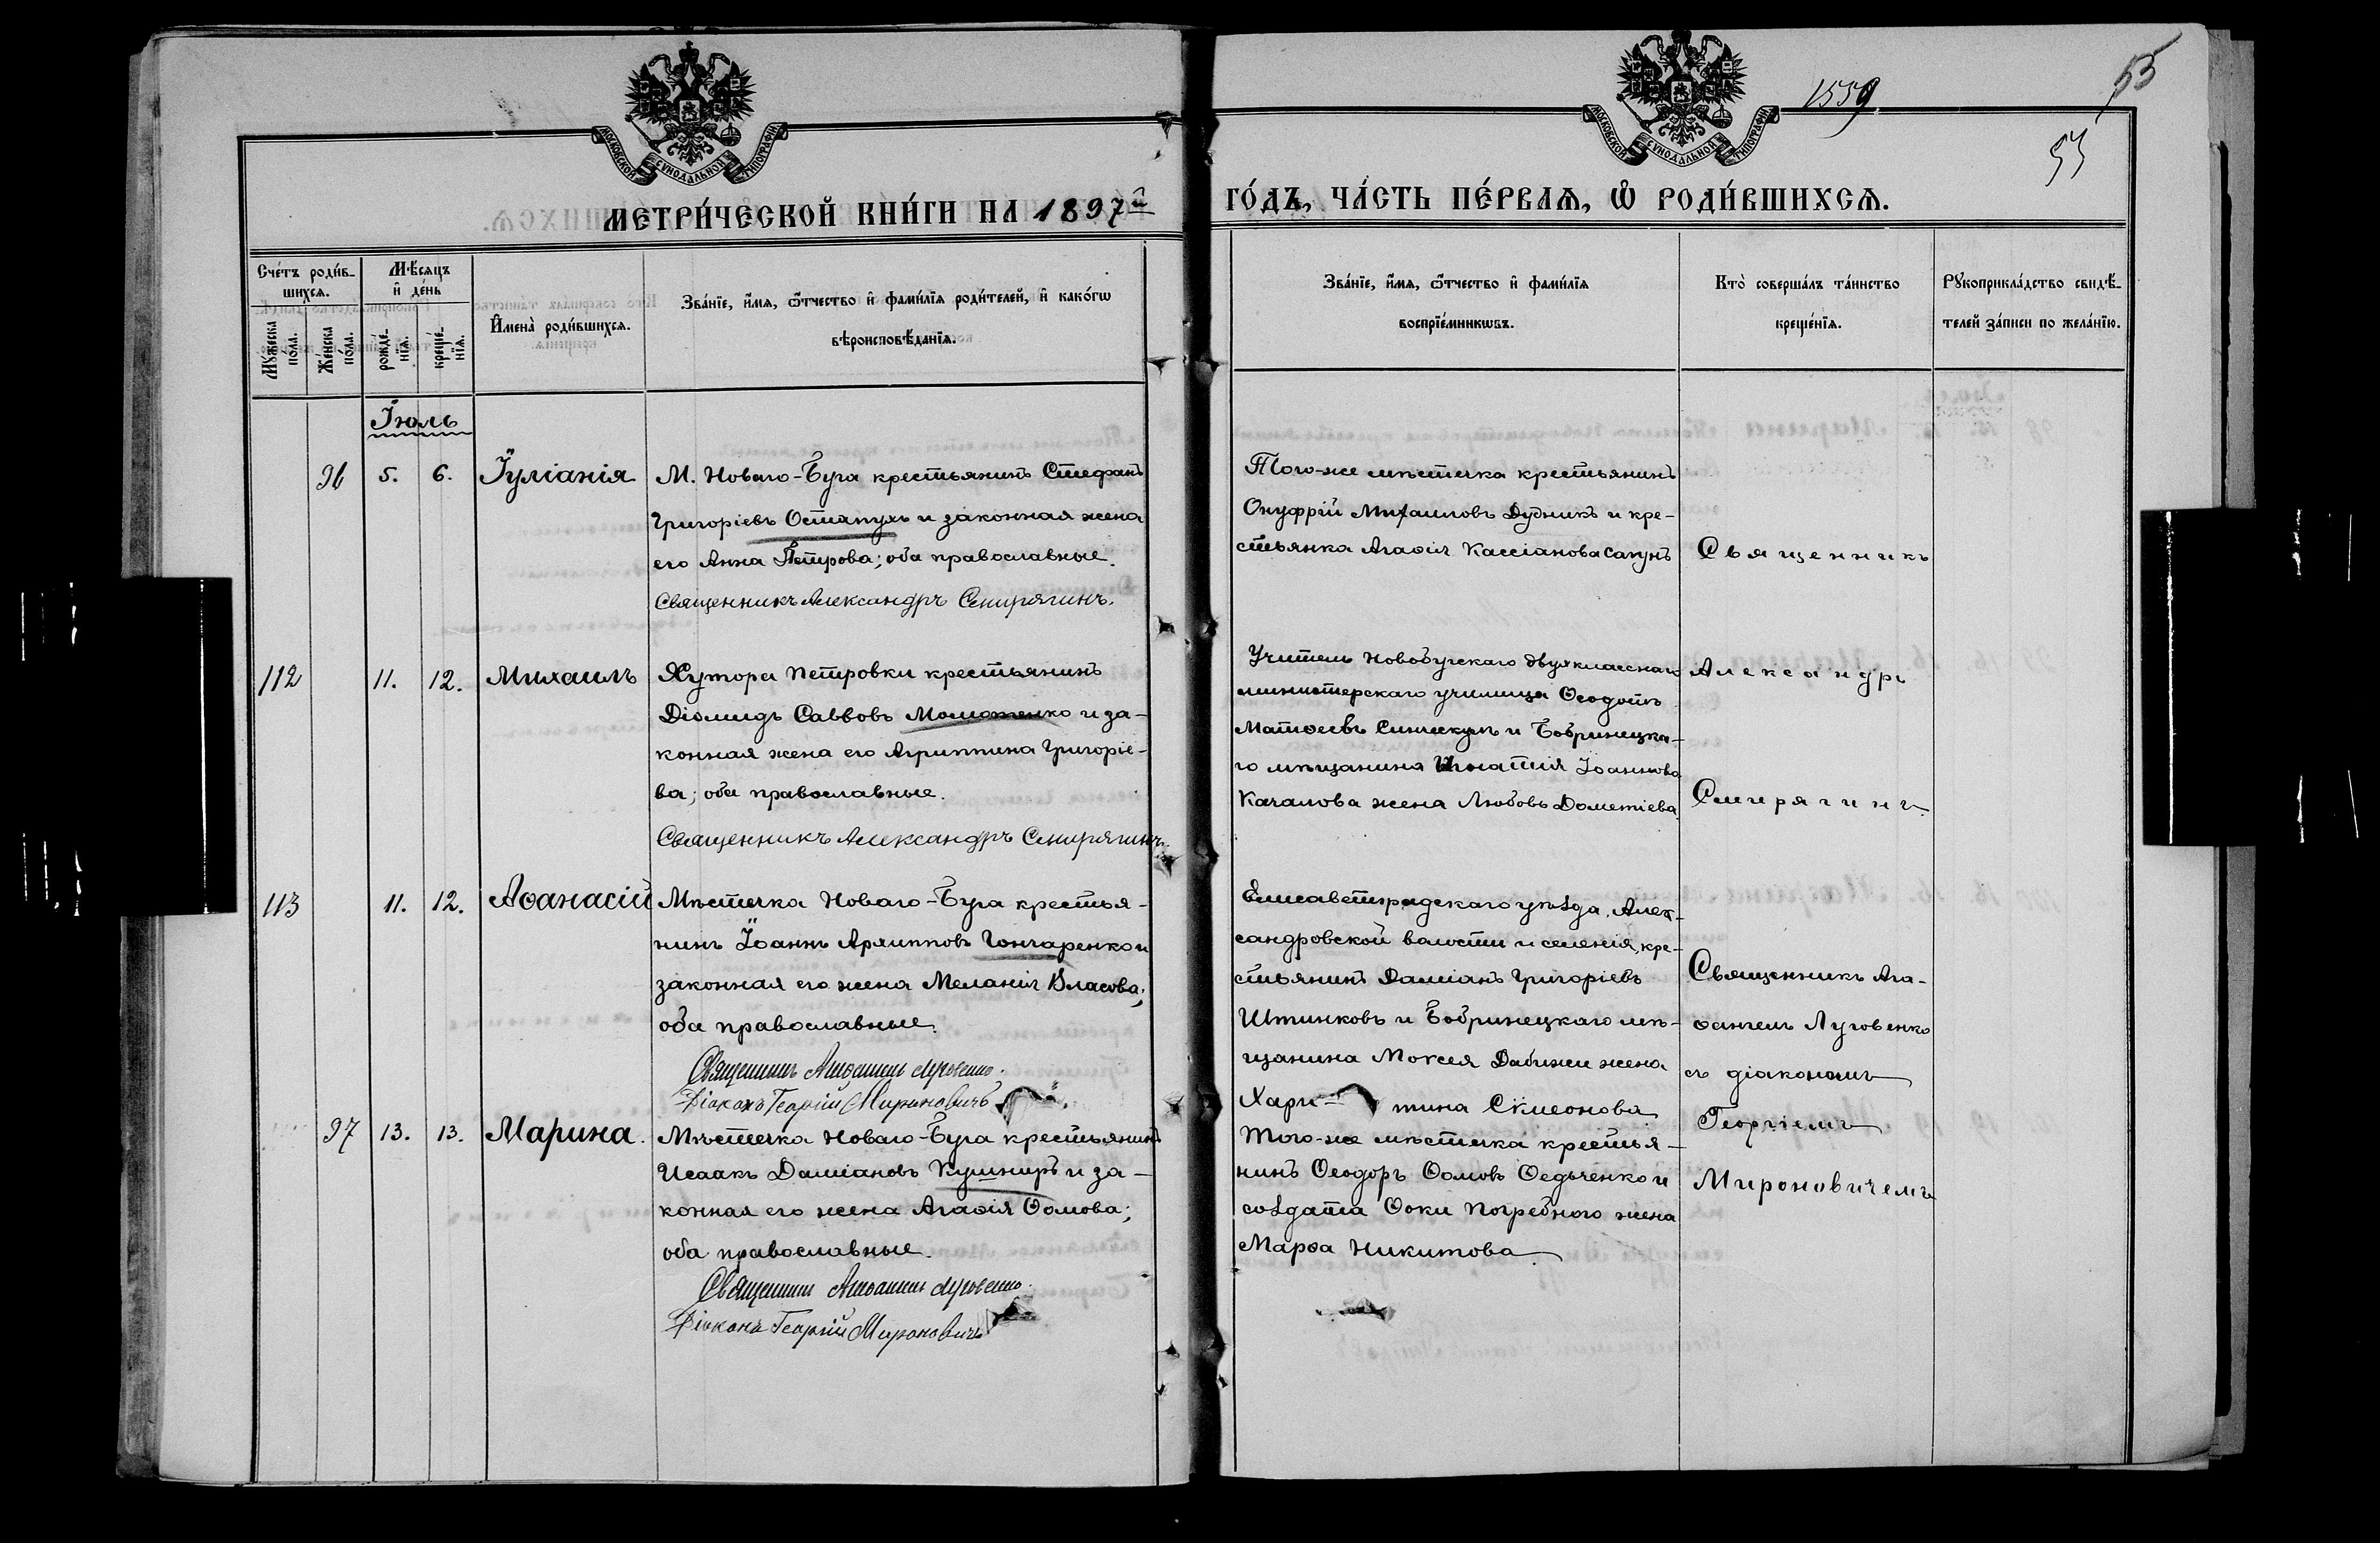 1559
53
53
МОСКОВСКОЙ СУНОДАЛЬНОЙ ТИПОГРАФІИ
МОСКОВСКОЙ СУНОДАЛЬНОЙ ТИПОГРАФІИ
МЕТРИ́ЧЕСКОЙ КНИ́ГИ НА 1897й
ГО́ДЪ, ЧА́СТЬ ПЕ́РВАѦ, Ѡ҆ РОДИ́ВШИХСѦ.
Сче́тъ роди́в-
шихсѧ.
Мꙋ́жеска по́ла.
Же́нска по́ла.
Мѣ́сѧцъ
и҆ де́нь
рожде́-нїѧ.
креще́-нїѧ.
И҆мена̀ роди́вшихсѧ.
Зва́нїе, и҆́мѧ, ѻ҆́тчество и҆ фами́лїѧ роди́телей, и҆ како́гѡ
вѣроисповѣ́данїѧ.
Зва́нїе, и҆́мѧ, ѻ҆́тчество и҆ фами́лїѧ
воспрїе́мникѡвъ.
Кто̀ соверша́лъ та́инство
креще́нїѧ.
Рꙋкоприкла́дство свидѣ́-
телей за́писи по жела́нїю.
Іюль
96 5. 6. Іуліанія
М. Новаго-Буга крестьянинъ Стефанъ
Григоріевъ Остапухъ и законная жена
его Анна Петрова; оба православные.
Священникъ Александръ Снигрягинъ.
Того-же мѣстечка крестьянинъ
Онуфрій Михаиловъ Дудникъ и кре-
стьянка Агаѳія Кассіанова Сапунъ
Священникъ
112 11. 12. Михаилъ
Хутора Петровки крестьянинъ
Діомидъ Саввовъ и за-
конная жена его Агриппина Григоріе-
ва; оба православные.
Священникъ Александръ
Учитель Новобугскаго двухкласснаго
министерскаго училища Ѳеодотъ
Матѳеевъ и Бобринецка-
го мѣщанина Игнатія Іоаннова
Качалова жена Любовь Дометіева
Александръ
113 11. 12. Аѳанасій
Мѣстечка Новаго-Буга крестья-
нинъ Іоаннъ Архипповъ Гончаренко и
законная его жена Меланія Власова;
оба православные.
Священникъ Агаѳангелъ Луговенко.
Діаконъ Георгій Мироновичъ
Елисаветградскаго уѣзда, Алек-
сандровской волости и селенія, кре-
стьянинъ Даміанъ Григоріевъ
и Бобринецкаго мѣ-
щанина Мокея Дабижи жена
Хари- тина Симеонова
Священникъ Ага-
ѳангелъ Луговенко
съ діакономъ
Георгіемъ
Мироновичемъ
97 13. 13. Марина.
Мѣстечка Новаго-Буга крестьянинъ
Исаакъ Даміановъ Кушниръ и за-
конная его жена Агаѳія Ѳомова;
оба православные.
Священникъ Агаѳангелъ Луговенко.
Діаконъ Георгій Мироновичъ
Того-же мѣстечка крестья-
нинъ Ѳеодоръ Ѳомовъ Ѳедьченко и
солдата Ѳоки Погребного жена
Марѳа Никитова